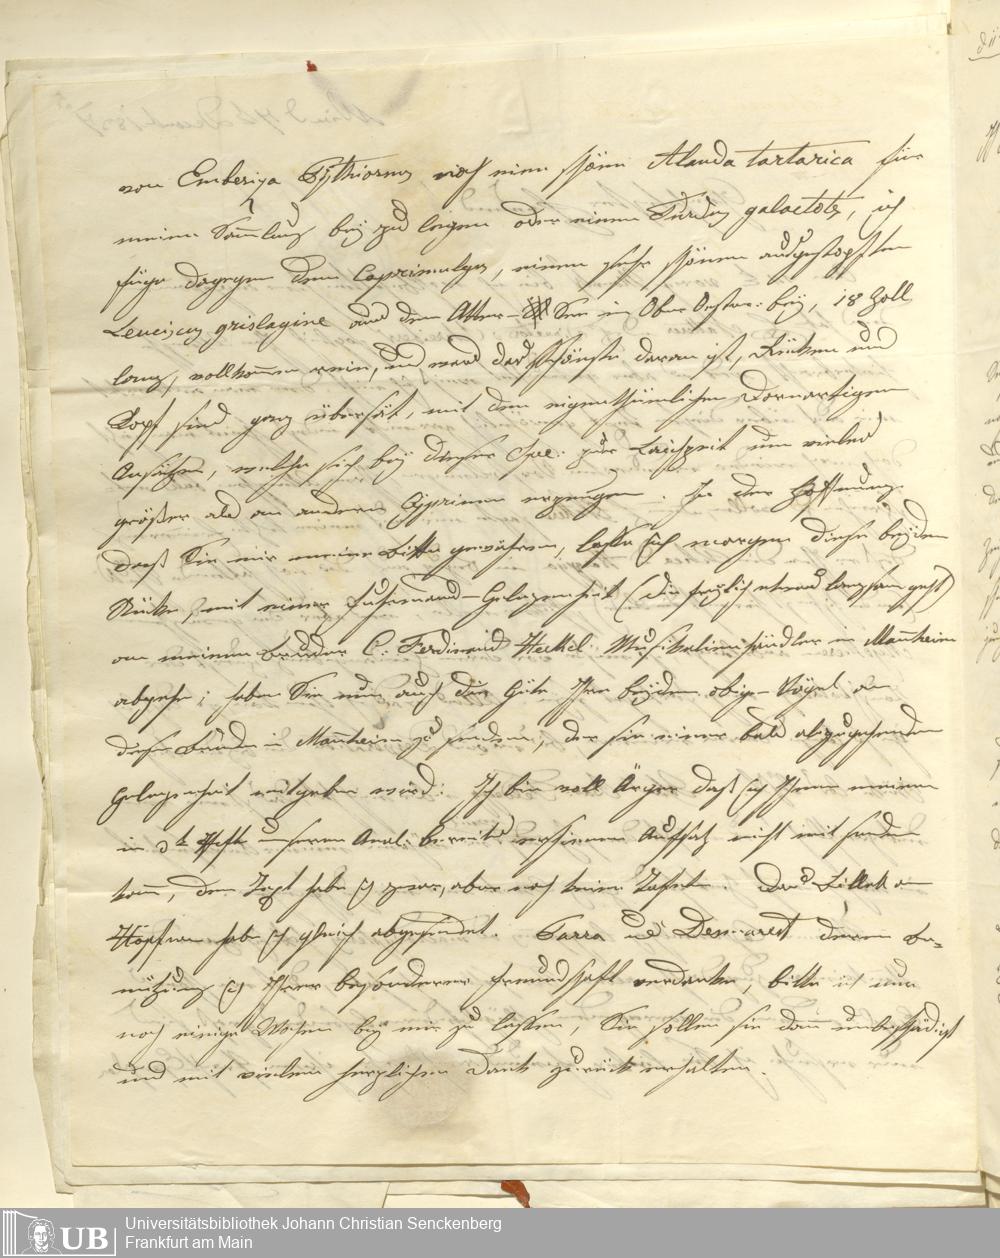 von Emberiza Pythiornus noch eine schöne Alauda tartarica für
meine Sammlung bey zu legen oder einen Turdus galactotes, ich
füge dagegen dem Caprimulgus, einen sehr schönen ausgestopften
Leuciscus grislagine aus dem Atter-See in Ober Oester: bey, 18 Zoll
lang, vollkommen rein, und was das schönste daran ist, Rücken und
Kopf sind ganz übersät, mit den eigenthümlichen Dornartigen
Ansätzen, welche sich bey dieser Spe: zur Laichzeit um vieles
größer als an andern Cyprinen erzeugen. In der Hoffnung
daß Sie mir meine Bitte gewähren, lasse ich morgen diese beyden
Stücke mit einer Fuhrmanns-Gelegenheit (die freylich etwas langsam geht)
an meinen Bruder C: Ferdinand Heckel Musikalienhändler in Mannheim
abgehn; haben Sie nun auch die Güte Ihre beyden obige Vögel an
diesen Bruder in Mannheim zu senden, der sie einer bald abzugehenden
Gelegenheit mitgeben wird. Ich bin voll Ärger daß ich Ihnen meinen
in 3t Hefte unserer Anal: bereits erschienen Aufsatz nicht mit senden
kann, den Text habe ich zwar, aber noch keine Tafeln. Das Billet an
Hopfner habe ich gleich abgesendet. Parra und Desmarest deren Be=
nützung ich Ihrer besonderen Freundschaft verdanke, bitte ich nur
noch einige Wochen bey mir zu lassen, Sie sollen sie dann unbeschädigt
und mit vielem herzlichen Dank zurück erhalten.
UB
Universitätsbibliothek Johann Christian Senckenberg
Frankfurt am Main